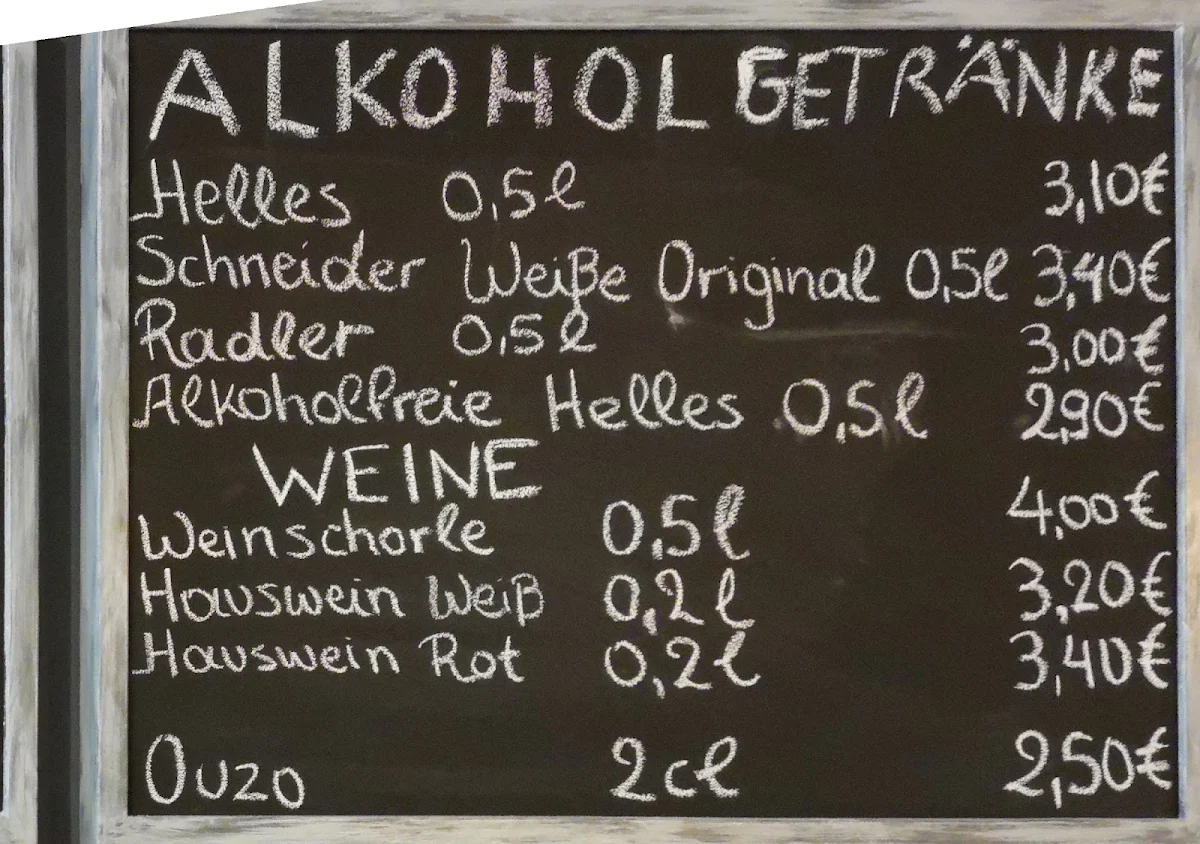 ALKOHOLGETRÄNKE
Helles 0,5l 3,10€
Schneider Weiße Original 0,5l 3,40€
Radler 0,5l 3,00€
Alkoholfreie Helles 0,5l 2,90€
WEINE
Weinschorle 0,5l 4,00€
Hauswein Weiß 0,2l 3,20€
Hauswein Rot 0,2l 3,40€
Ouzo 2cl 2,50€